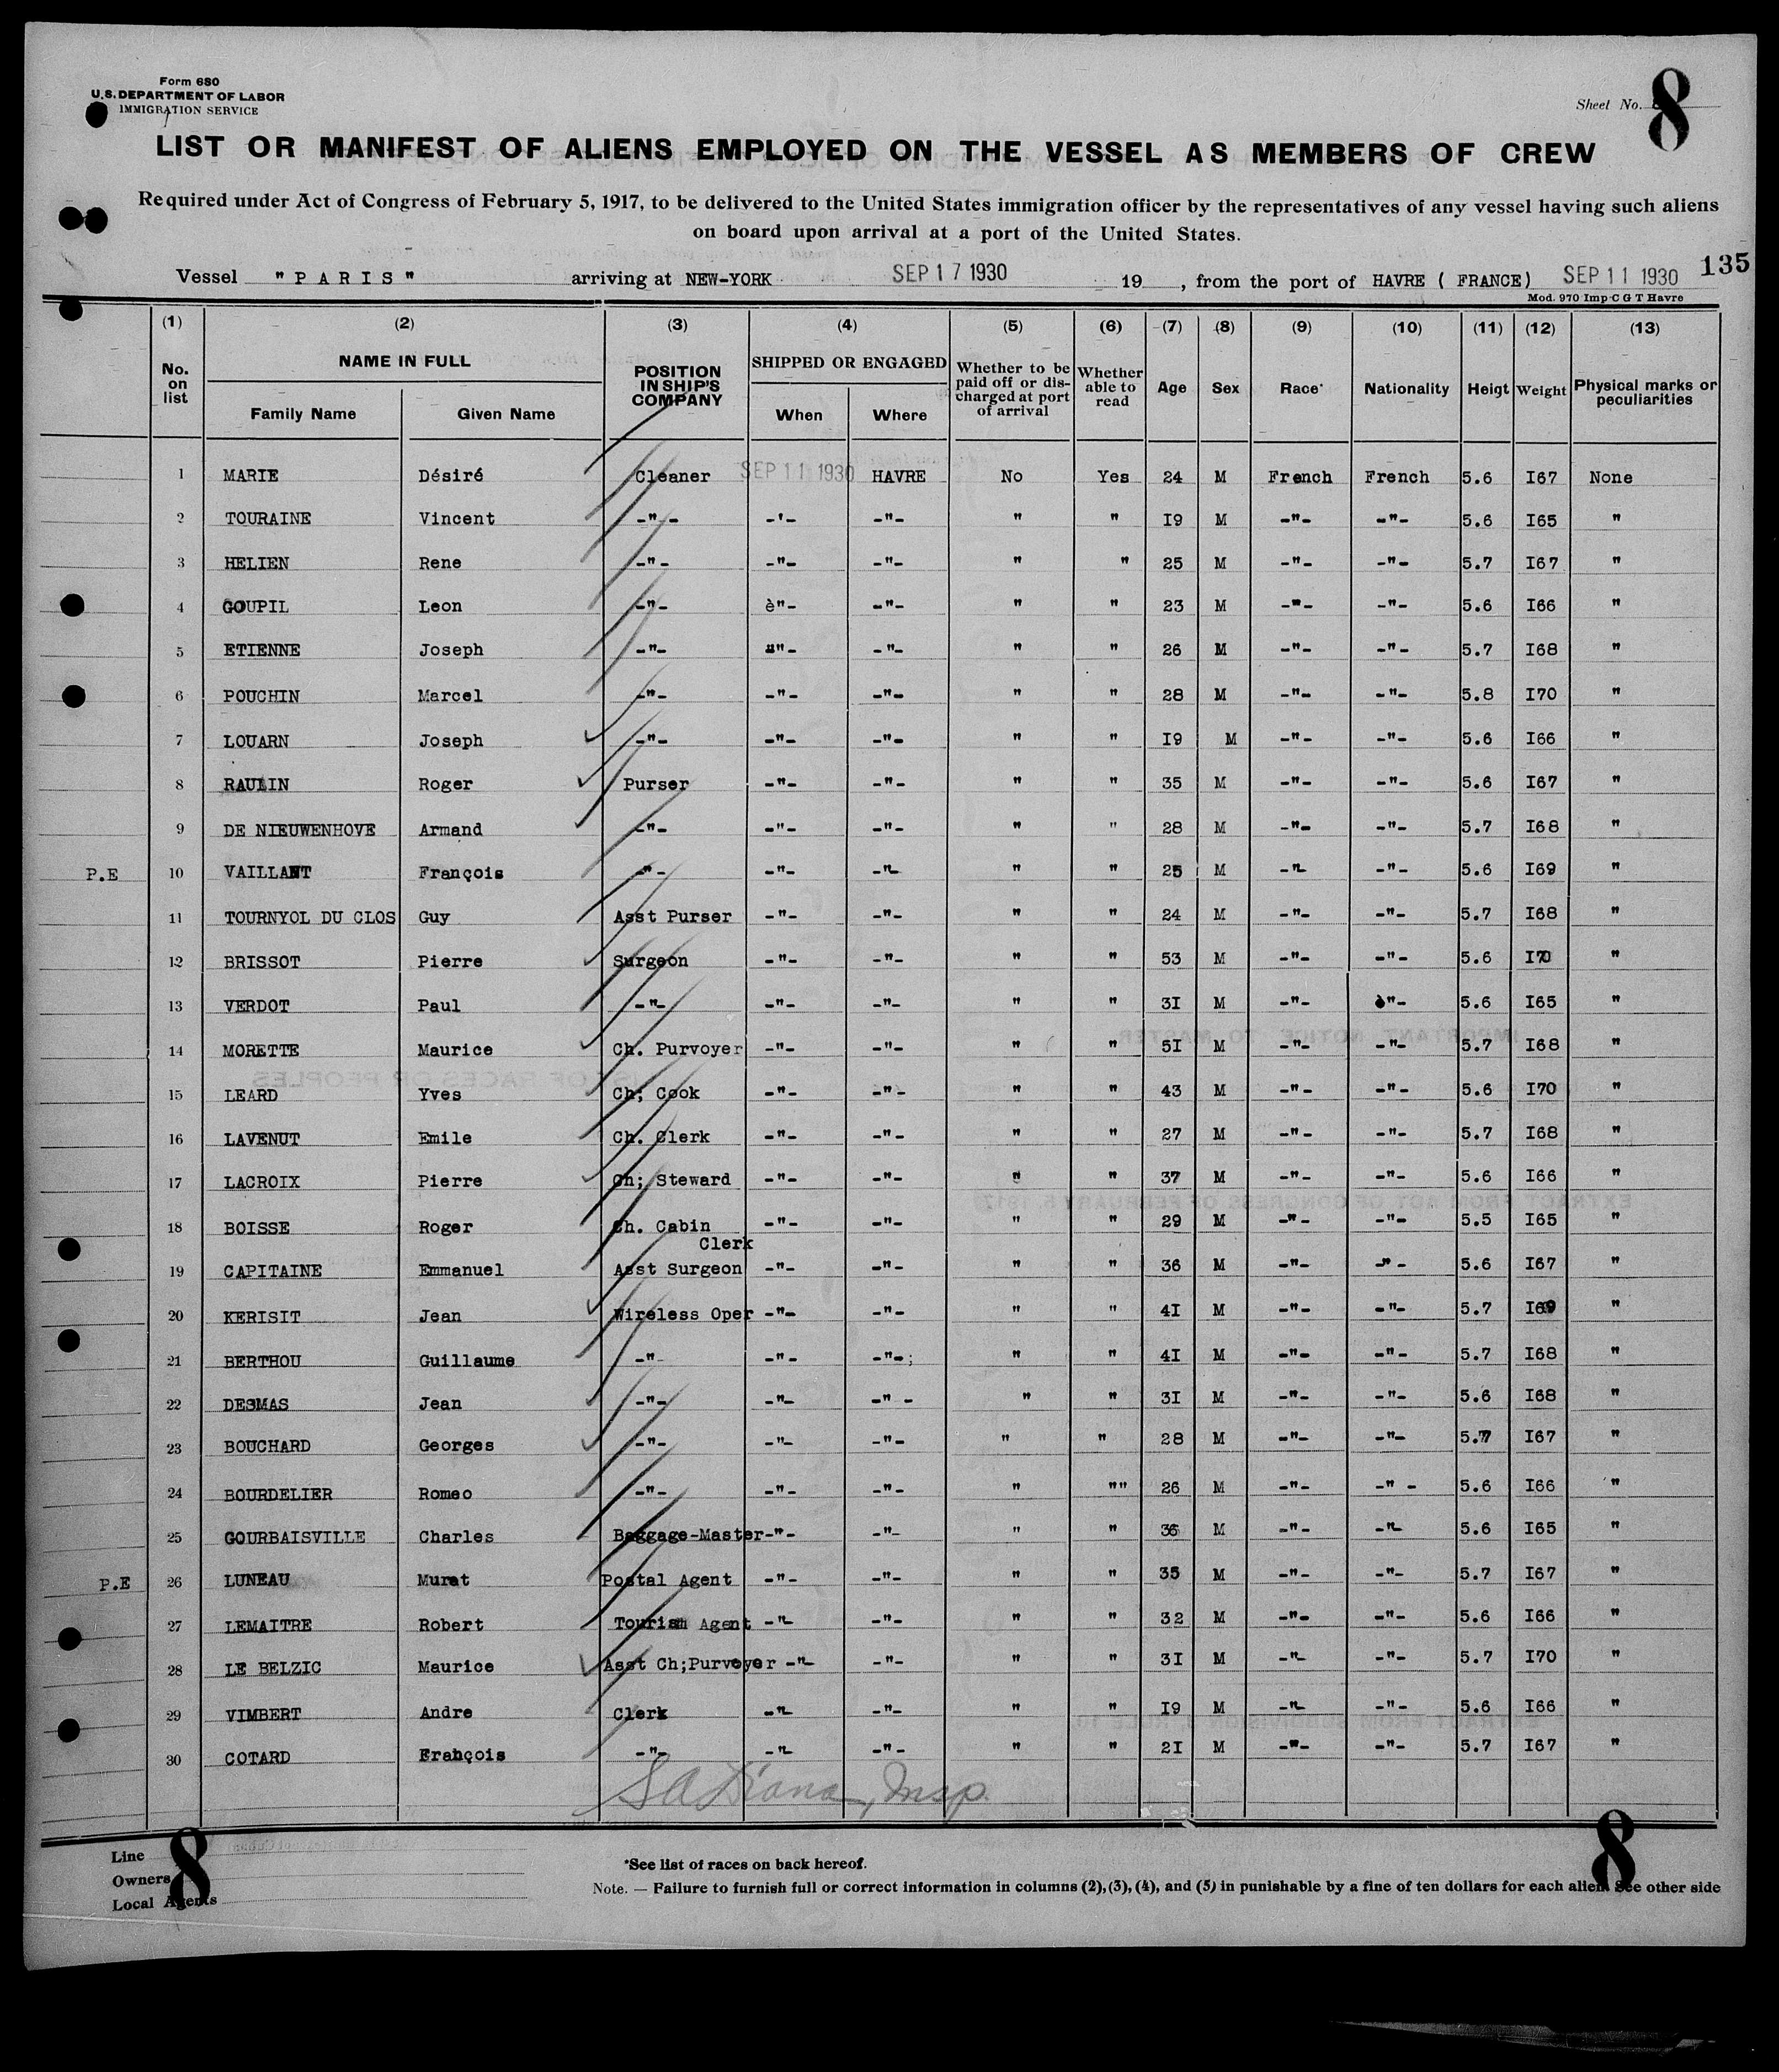 Form 680
U.S. DEPARTMENT OF LABOR
IMMIGRATION SERVICE
Sheet No. 8
LIST OR MANIFEST OF ALIENS EMPLOYED ON THE VESSEL AS MEMBERS OF CREW
Required under Act of Congress of February 5, 1917, to be delivered to the United States immigration officer by the representatives of any vessel having such aliens
on board upon arrival at a port of the United States.
135
Vessel "PARIS" arriving at NEW-YORK SEP 17 1930 19 , from the port of HAVRE ( FRANCE) SEP 11 1930
Mod. 970 Imp C G T Havre
(1) (2) (3) (4) (5) (6) (7) (8) (9) (10) (11) (12) (13)
No. on list NAME IN FULL Family Name Given Name POSITION IN SHIP'S COMPANY SHIPPED OR ENGAGED When Where Whether to be paid off or discharged at port of arrival Whether able to read Age Sex Race* Nationality Heigt Weight Physical marks or peculiarities
1 MARIE Désiré Cleaner SEP 11 1930 HAVRE No Yes 24 M French French 5.6 I67 None
2 TOURAINE Vincent -"- -'- -"- " " I9 M -"- -"- 5.6 I65 "
3 HELIEN Rene -"- -"- -"- " " 25 M -"- -"- 5.7 I67 "
4 GOUPIL Leon -"- è"- -"- " " 23 M -"- -"- 5.6 I66 "
5 ETIENNE Joseph -"- ""- -"- " " 26 M -"- -"- 5.7 I68 "
6 POUCHIN Marcel -"- -"- -"- " " 28 M -"- -"- 5.8 I70 "
7 LOUARN Joseph -"- -"- -"- " " I9 M -"- -"- 5.6 I66 "
8 RAULIN Roger Purser -"- -"- " " 35 M -"- -"- 5.6 I67 "
9 DE NIEUWENHOVE Armand -"- -"- -"- " " 28 M -"- -"- 5.7 I68 "
P.E 10 VAILLANT François -"- -"- -"- " " 25 M -"- -"- 5.6 I69 "
11 TOURNYOL DU CLOS Guy Asst Purser -"- -"- " " 24 M -"- -"- 5.7 I68 "
12 BRISSOT Pierre Surgeon -"- -"- " " 53 M -"- -"- 5.6 I70 "
13 VERDOT Paul -"- -"- -"- " " 3I M -"- è"- 5.6 I65 "
14 MORETTE Maurice Ch. Purvoyer -"- -"- " " 5I M -"- -"- 5.7 I68 "
15 LEARD Yves Ch; Cook -"- -"- " " 43 M -"- -"- 5.6 I70 "
16 LAVENUT Emile Ch. Clerk -"- -"- " " 27 M -"- -"- 5.7 I68 "
17 LACROIX Pierre Ch; Steward -"- -"- " " 37 M -"- -"- 5.6 I66 "
18 BOISSE Roger Ch. Cabin Clerk -"- -"- " " 29 M -"- -"- 5.5 I65 "
19 CAPITAINE Emmanuel Asst Surgeon -"- -"- " " 36 M -"- -"- 5.6 I67 "
20 KERISIT Jean Wireless Oper -"- -"- " " 4I M -"- -"- 5.7 I69 "
21 BERTHOU Guillaume -"- -"- -"-; " " 4I M -"- -"- 5.7 I68 "
22 DESMAS Jean -"- -"- -" - " " 3I M -"- -"- 5.6 I68 "
23 BOUCHARD Georges -"- -"- -"- " " 28 M -"- -"- 5.7 I67 "
24 BOURDELIER Romeo -"- -"- -"- " "" 26 M -"- -" - 5.6 I66 "
25 GOURBAISVILLE Charles Baggage-Master -"- -"- " " 36 M -"- -"- 5.6 I65 "
P.E 26 LUNEAU Murat Postal Agent -"- -"- " " 35 M -"- -"- 5.7 I67 "
27 LEMAITRE Robert Tourism Agent -"- -"- " " 32 M -"- -"- 5.6 I66 "
28 LE BELZIC Maurice Asst Ch;Purveyer -"- -"- " " 3I M -"- -"- 5.7 I70 "
29 VIMBERT Andre Clerk -"- -"- " " I9 M -"- -"- 5.6 I66 "
30 COTARD François -"- -"- -"- " " 2I M -"- -"- 5.7 I67 "
S A Diana, Insp.
Line
Owners
Local Agents
8
8
*See list of races on back hereof.
Note. — Failure to furnish full or correct information in columns (2), (3), (4), and (5) in punishable by a fine of ten dollars for each alien See other side